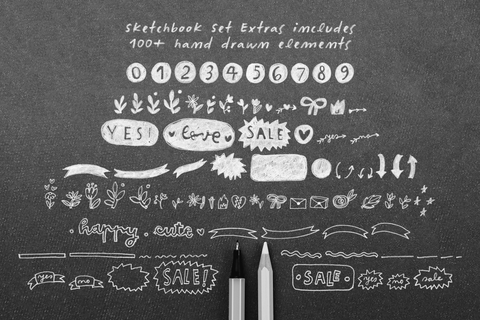 sketchbook set Extras includes
100+ hand drawn elements
0 1 2 3 4 5 6 7 8 9
YES! love SALE yes no
happy cute
yes no SALE! SALE yes no sale